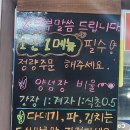 말씀 드립니다
1인 1메뉴 필수
정량주문 해주세요.
양념장 비율
간장1:겨자1:식초0.5
다시기, 파, 김치는